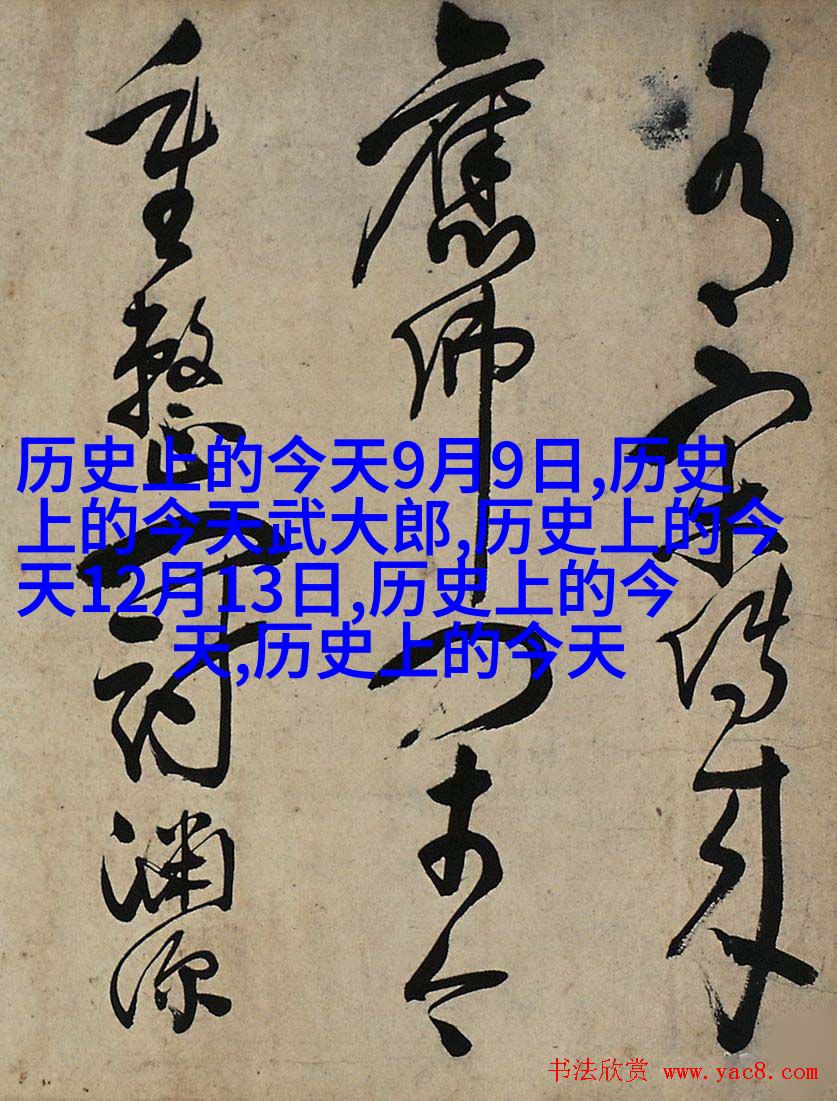 傳
佛
今
重整
淵源
历史上的今天9月9日,历史
上的今天武大郎,历史上的今
天12月13日,历史上的今
天,历史上的今天
书法欣赏 www.yac8.com